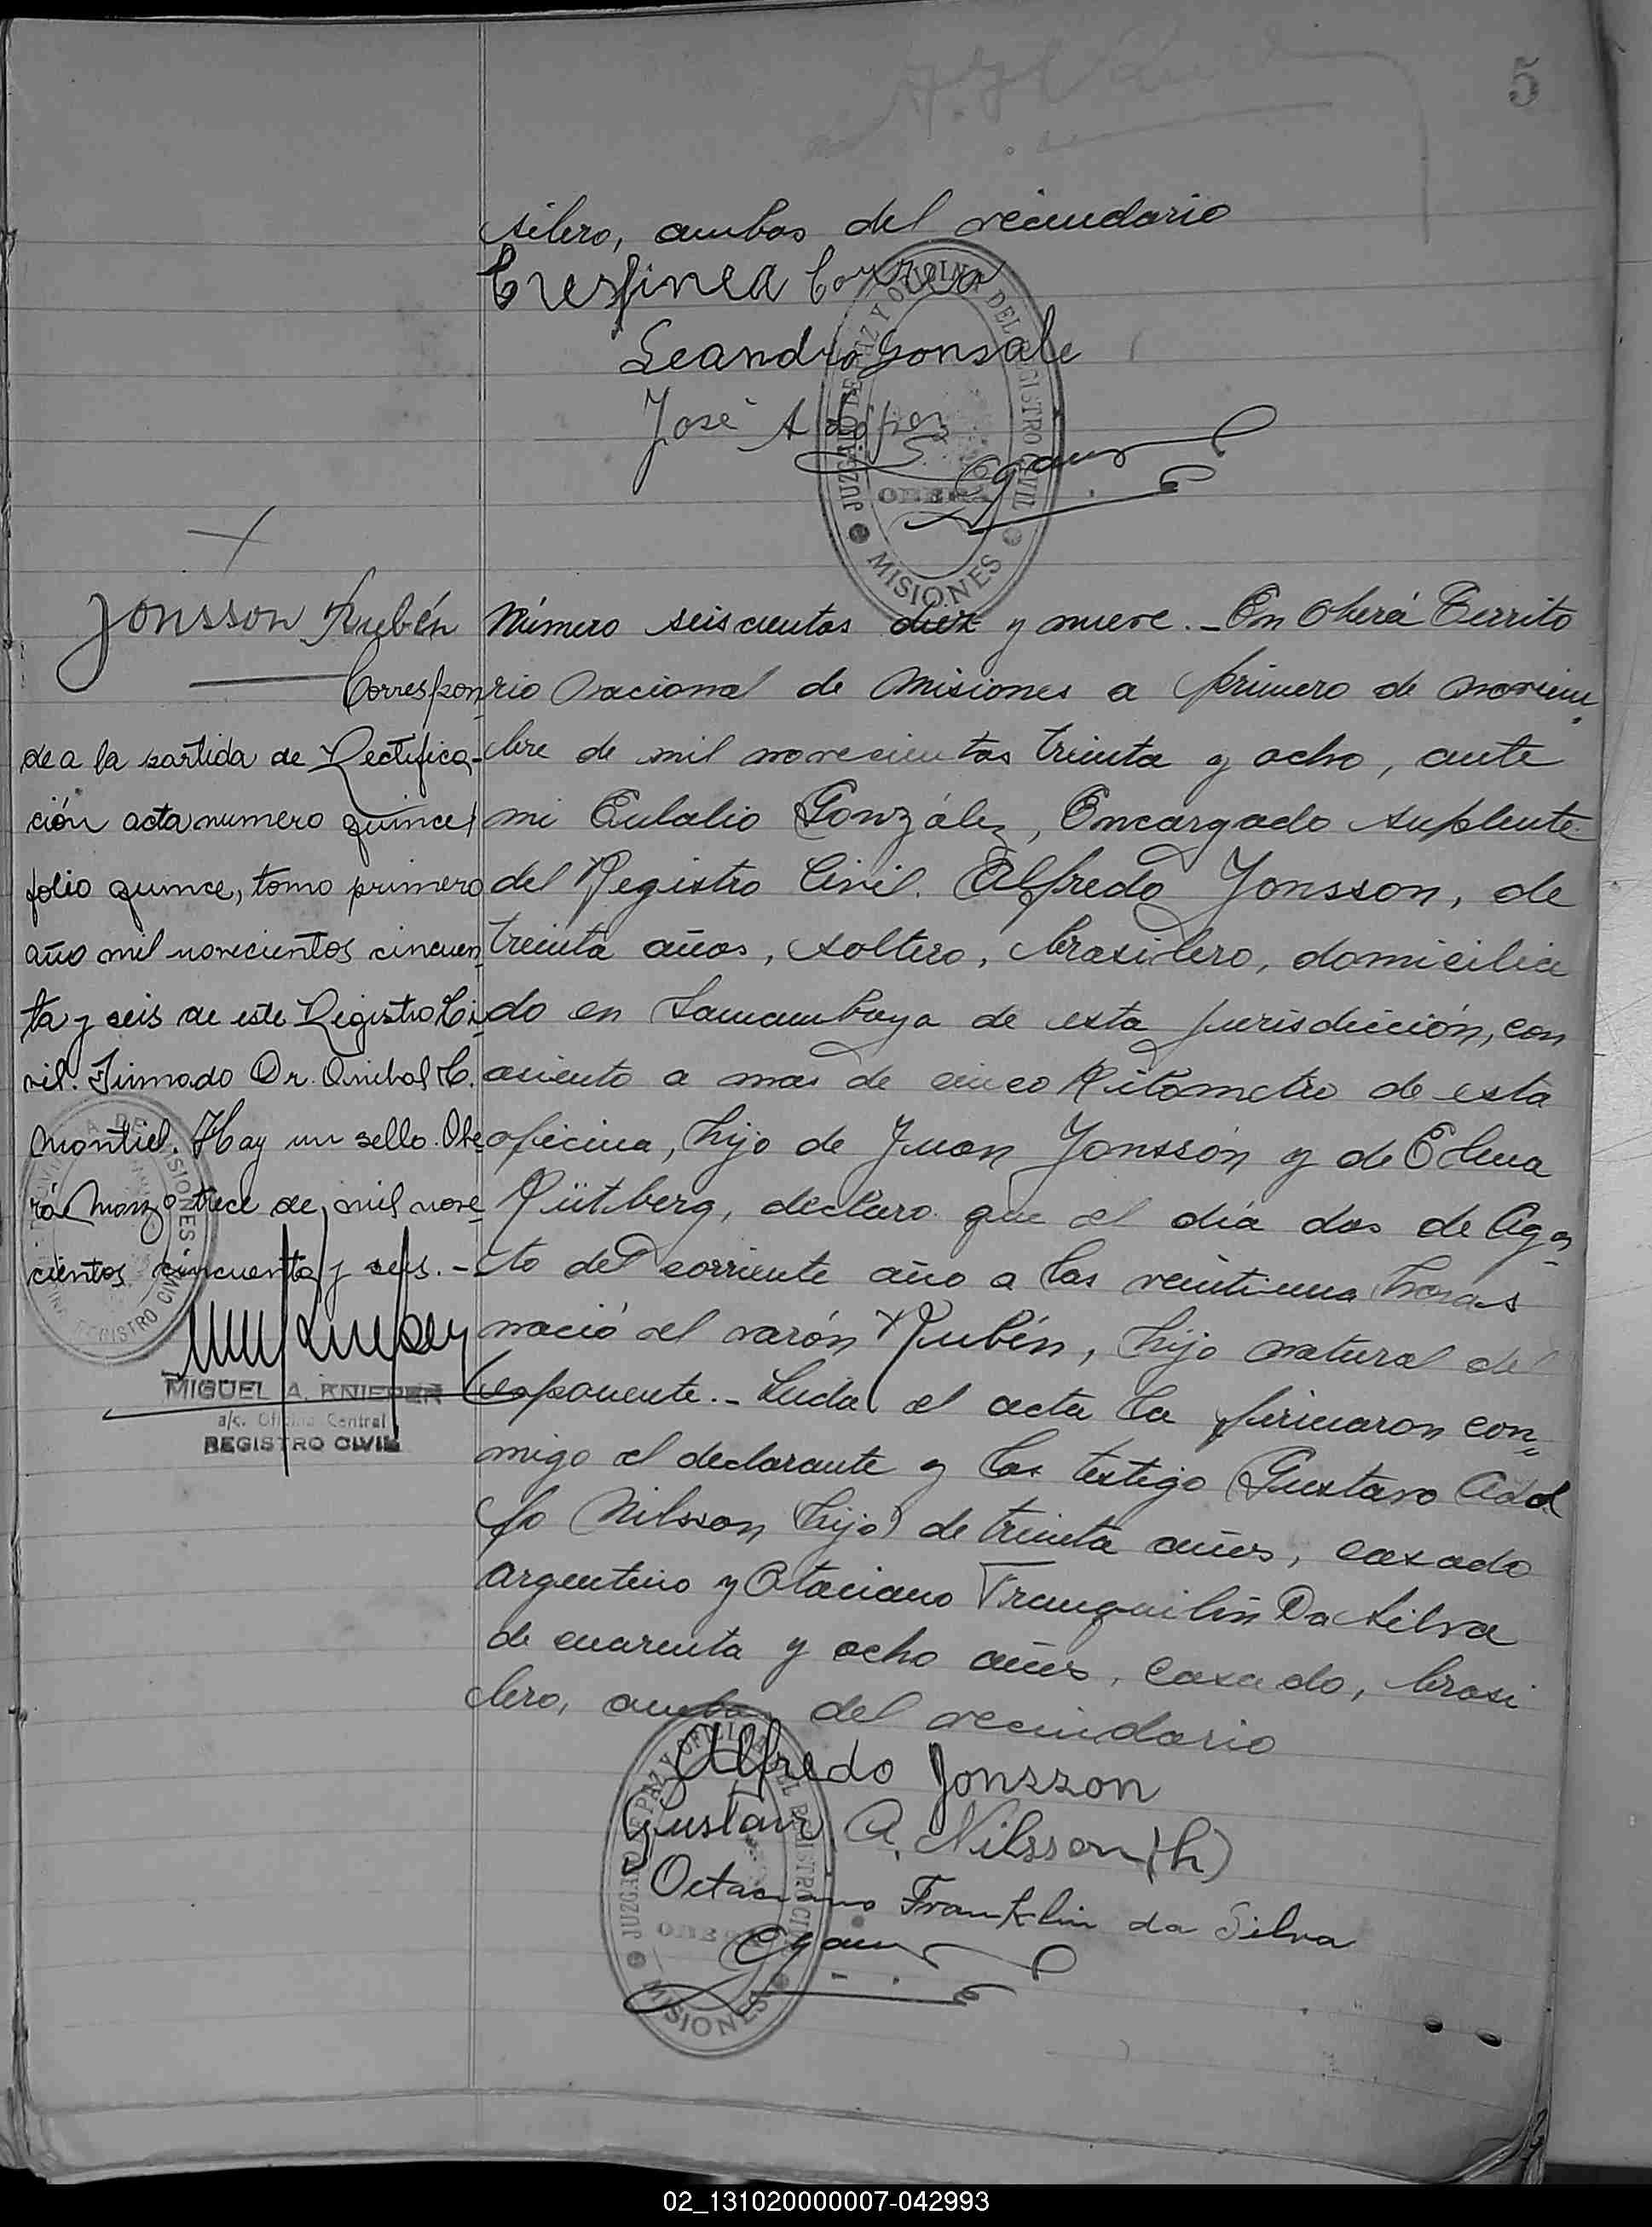 5
silero, ambos del vecindario
Leandro Gonsale
José A López
JUZGADO DE PAZ Y OFICINA DEL REGISTRO CIVIL
OBERÁ
MISIONES
Jonsson Rubén
Correspon-
de a la partida de Rectifica-
ción acta numero quince,
folio quince, tomo primero
año mil novecientos cincuen-
ta y seis de este Registro Ci-
vil. Firmado Dr. Anibal H.
Montiel. Hay un sello. Obe-
rá Marzo trece de mil nove-
cientos cincuenta y seis.-
MIGUEL A. KNIEPER
a/c. Oficina Central
REGISTRO CIVIL
Número seiscientos diez y nueve.- En Oberá Territo
rio Nacional de Misiones a primero de noviem-
bre de mil novecientos treinta y ocho, ante
mi Eulalio González, Encargado suplente
del Registro Civil. Alfredo Jonsson, de
treinta años, soltero, brasilero, domicilia
do en Samambaya de esta jurisdicción, con
asiento a mas de cinco Kilometro de esta
oficina, hijo de Juan Jonssón y de Edma
Rütberg, declaro que el día dos de Agos-
to del corriente año a las veintiuna horas
nació el varón Rubén, hijo natural del
esponente.- Leida el acta la firmaron con-
migo el declarante y los testigo Gustavo Adol
fo Nilsson (hijo) de treinta años, casado
argentino y Otaciano Franquilin Da Silva
de cuarenta y ocho años, casado, brasi
lero, ambos del vecindario
Alfredo Jonsson
Gustavo A. Nilsson (h)
Octaciano Franklin da Silva
JUZGADO DE PAZ Y OFICINA DEL REGISTRO CIVIL
OBERÁ
MISIONES
02_131020000007-042993